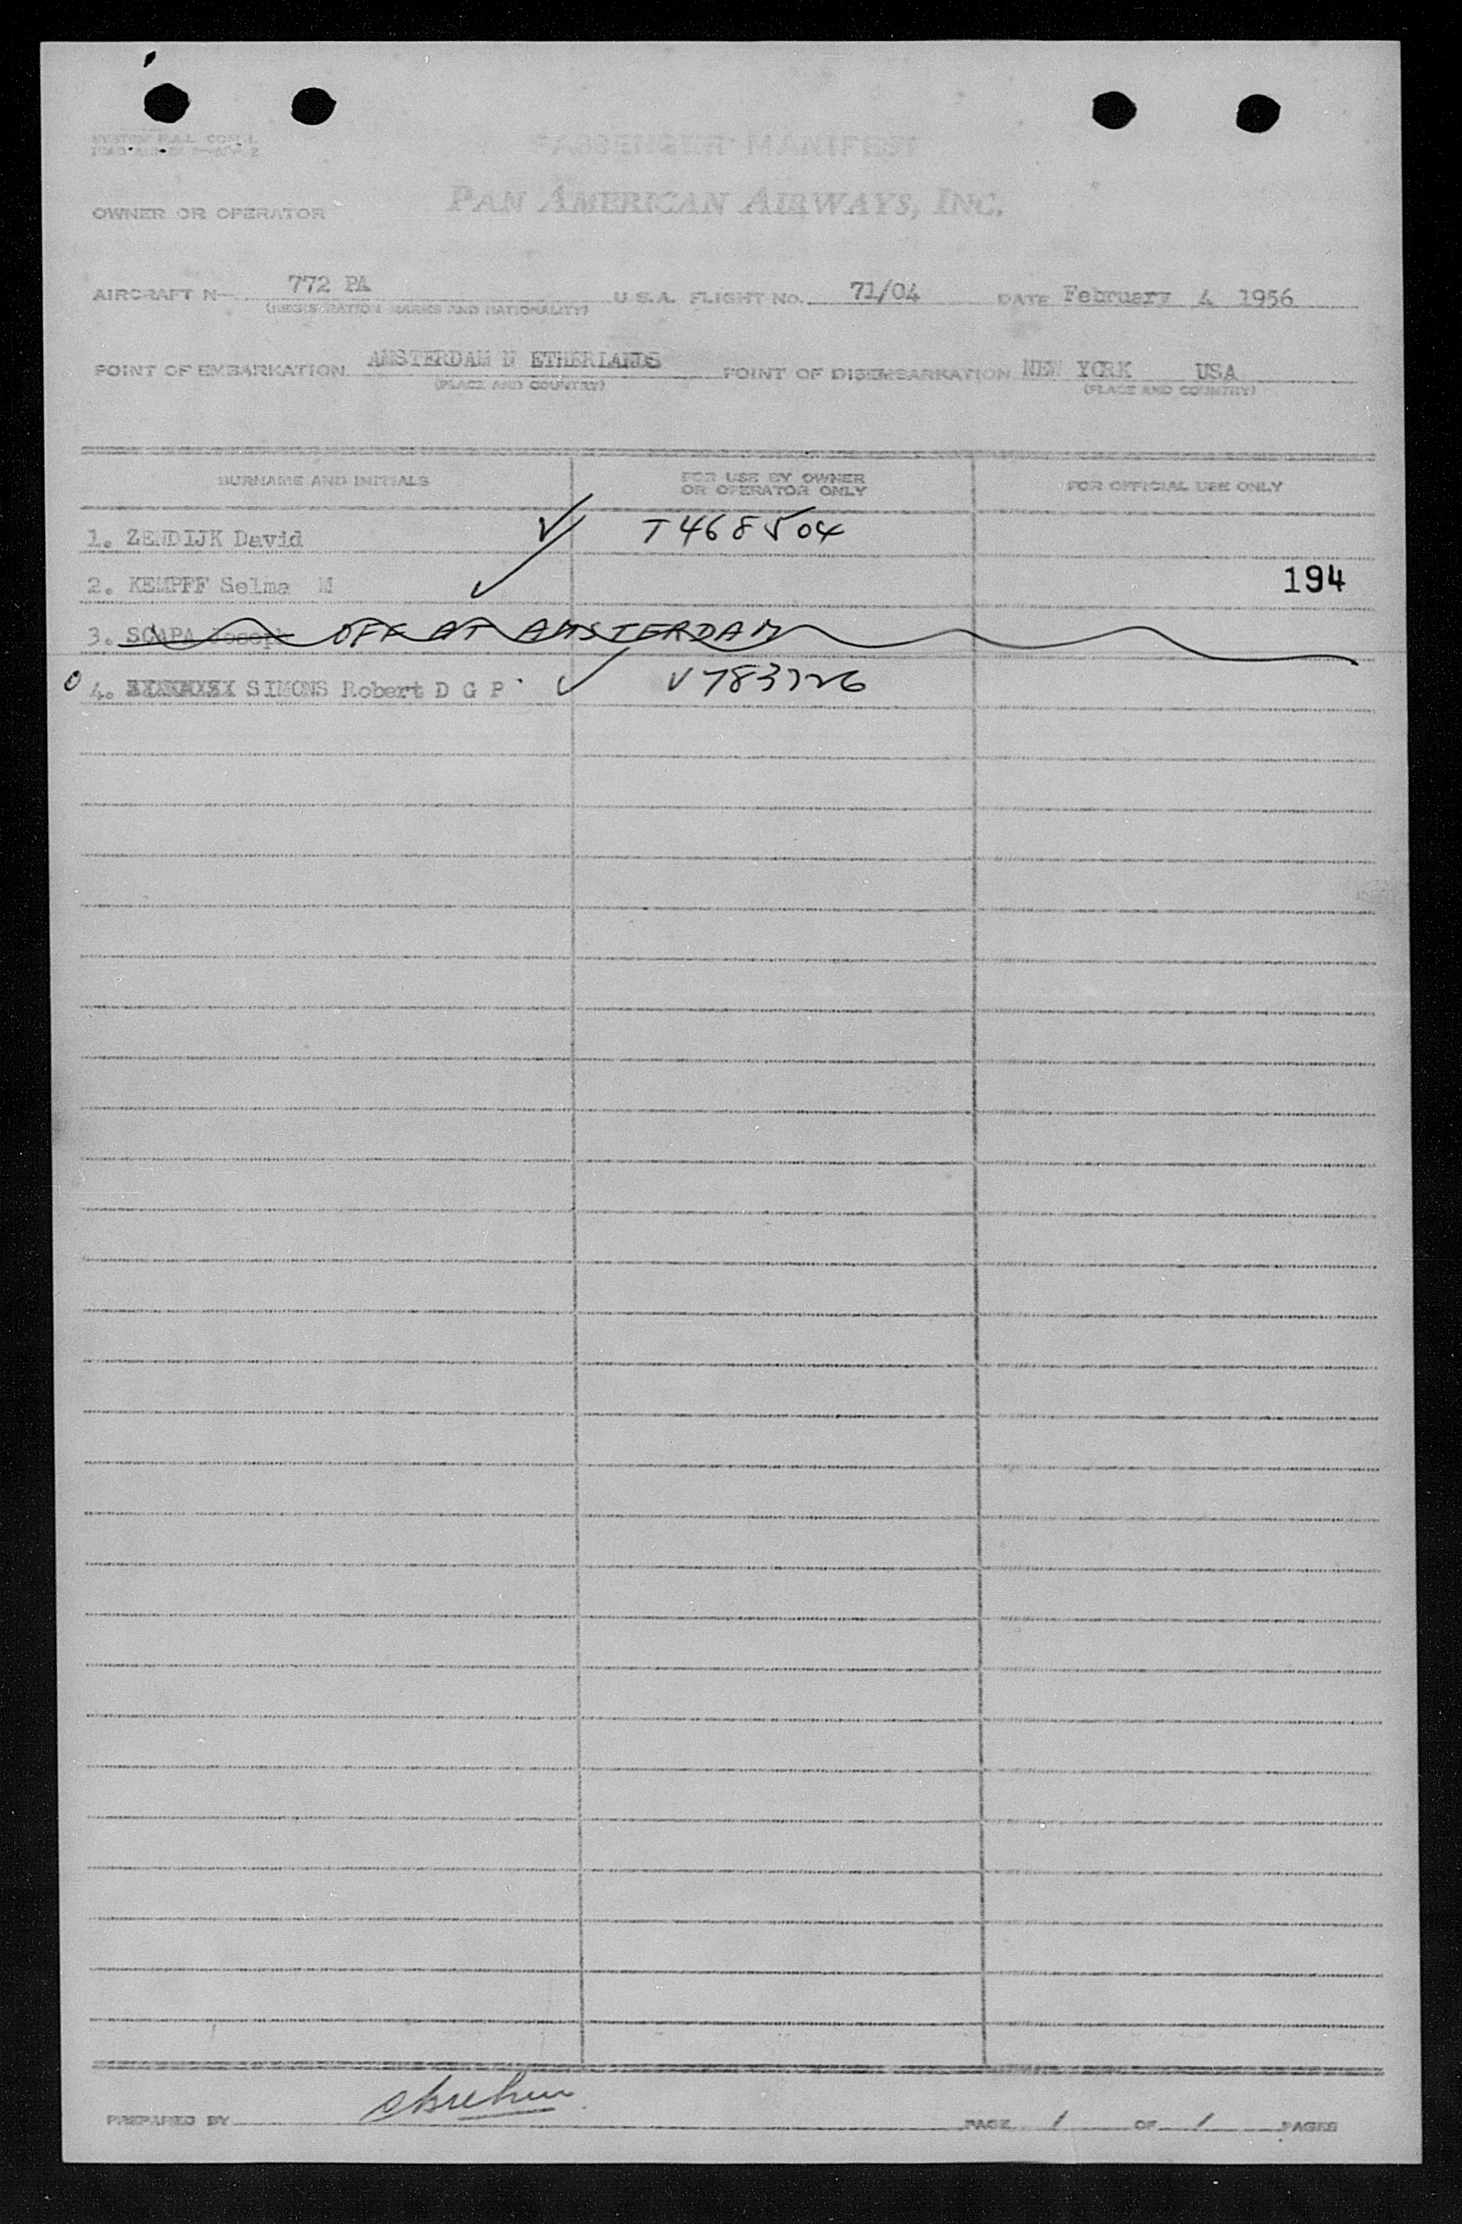 PASSENGER MANIFEST
OWNER OR OPERATOR PAN AMERICAN AIRWAYS, INC.
AIRCRAFT N— 772 PA U.S.A. FLIGHT NO. 71/04 DATE February 4 1956
(REGISTRATION MARKS AND NATIONALITY)
POINT OF EMBARKATION AMSTERDAM N ETHERLANDS POINT OF DISEMBARKATION NEW YORK USA
(PLACE AND COUNTRY) (PLACE AND COUNTRY)
SURNAME AND INITIALS FOR USE BY OWNER OR OPERATOR ONLY FOR OFFICIAL USE ONLY
1. ZENDIJK David T468504
2. KEMPFF Selma M 194
3. SCAPA Joseph OFF AT AMSTERDAM
4. SIMONS Robert D G P V783726
PREPARED BY PAGE 1 OF 1 PAGES